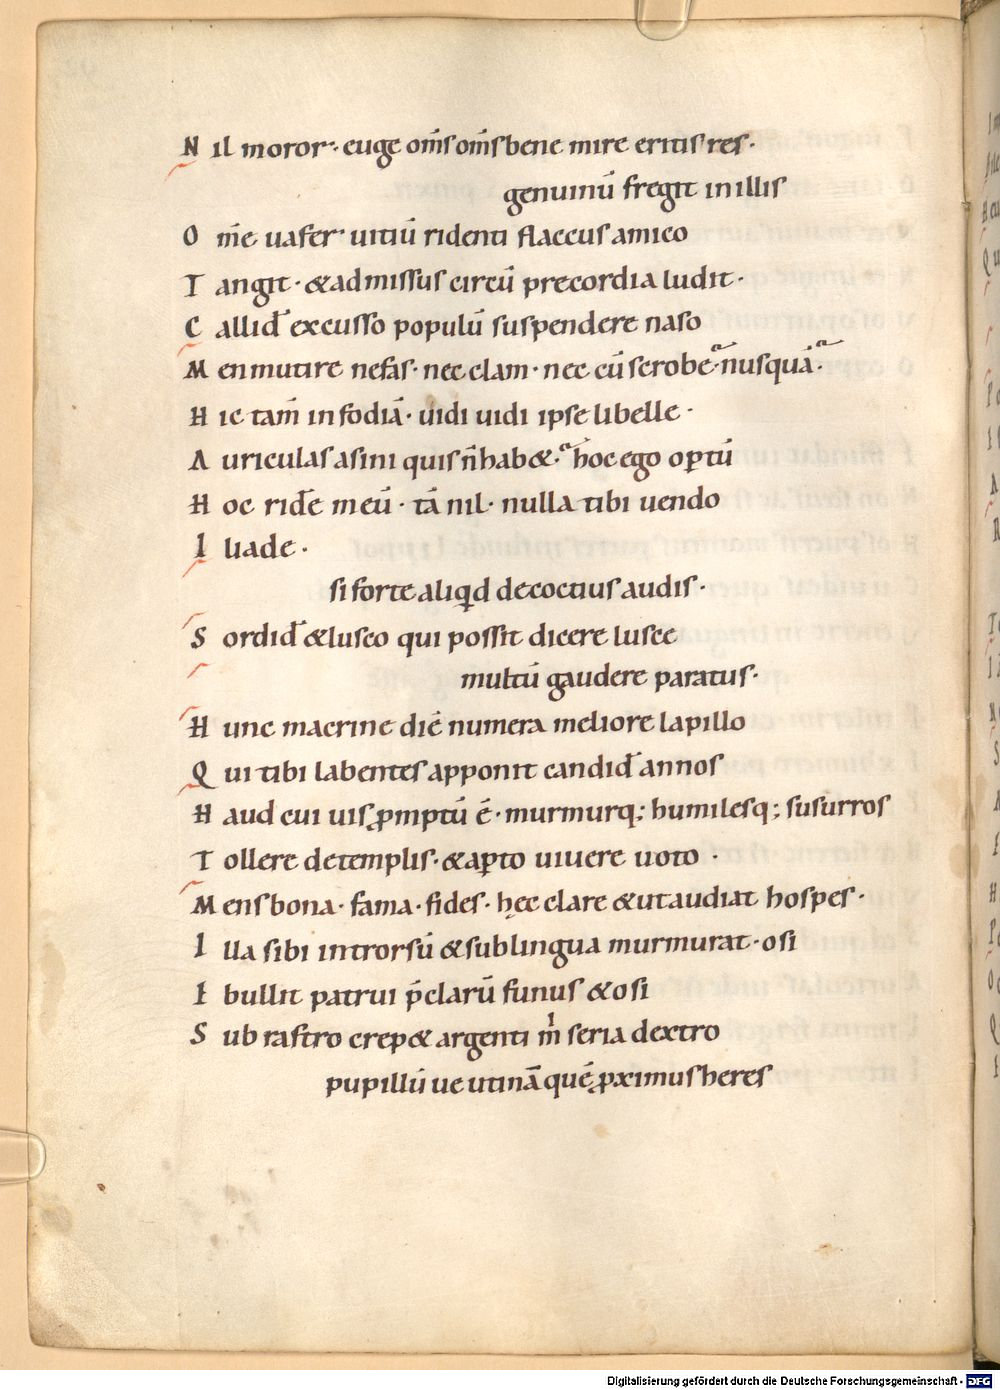 N il moror· euge om̄s om̄s bene mire eritis res·
genuinū fregit in illis
O m̄e uafer uitiū ridenti flaccus amico
T angit· & admissus circū precordia ludit·
C allid̄ excusso populū suspendere naso
M en mutire nefas· nec clam· nec cū scrobe· nusquā·
H ic tam̄ infodiā· uidi uidi ipse libelle·
A uriculas asini quis n̄ hab&· hoc ego optū
H oc rid̄e meū· tā nil· nulla tibi uendo
I liade·
si forte aliqid decoctius audis·
S ordid̄ & lusco qui possit dicere lusce
multū gaudere paratus·
H unc macrine diē numera meliore lapillo
Q ui tibi labentes apponit candid̄ annos
H aud cui uis pmptū ē· murmurq; humilesq; susurros
T ollere de templis· & apto uiuere uoto·
M ens bona· fama· fides· hęc clare & ut audiat hospes·
I lla sibi introrsū & sub lingua murmurat· o si
E bullit patrui p̄clarū funus & o si
S ub rastro crep& argenti m̍ seria dextro
pupillū ue utinā quē pximus heres
Digitalisierung gefördert durch die Deutsche Forschungsgemeinschaft - DFG